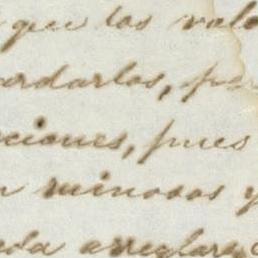 que los vale
ordarlos, por
ciones, pues
n ruinosos y
eda arreglarse